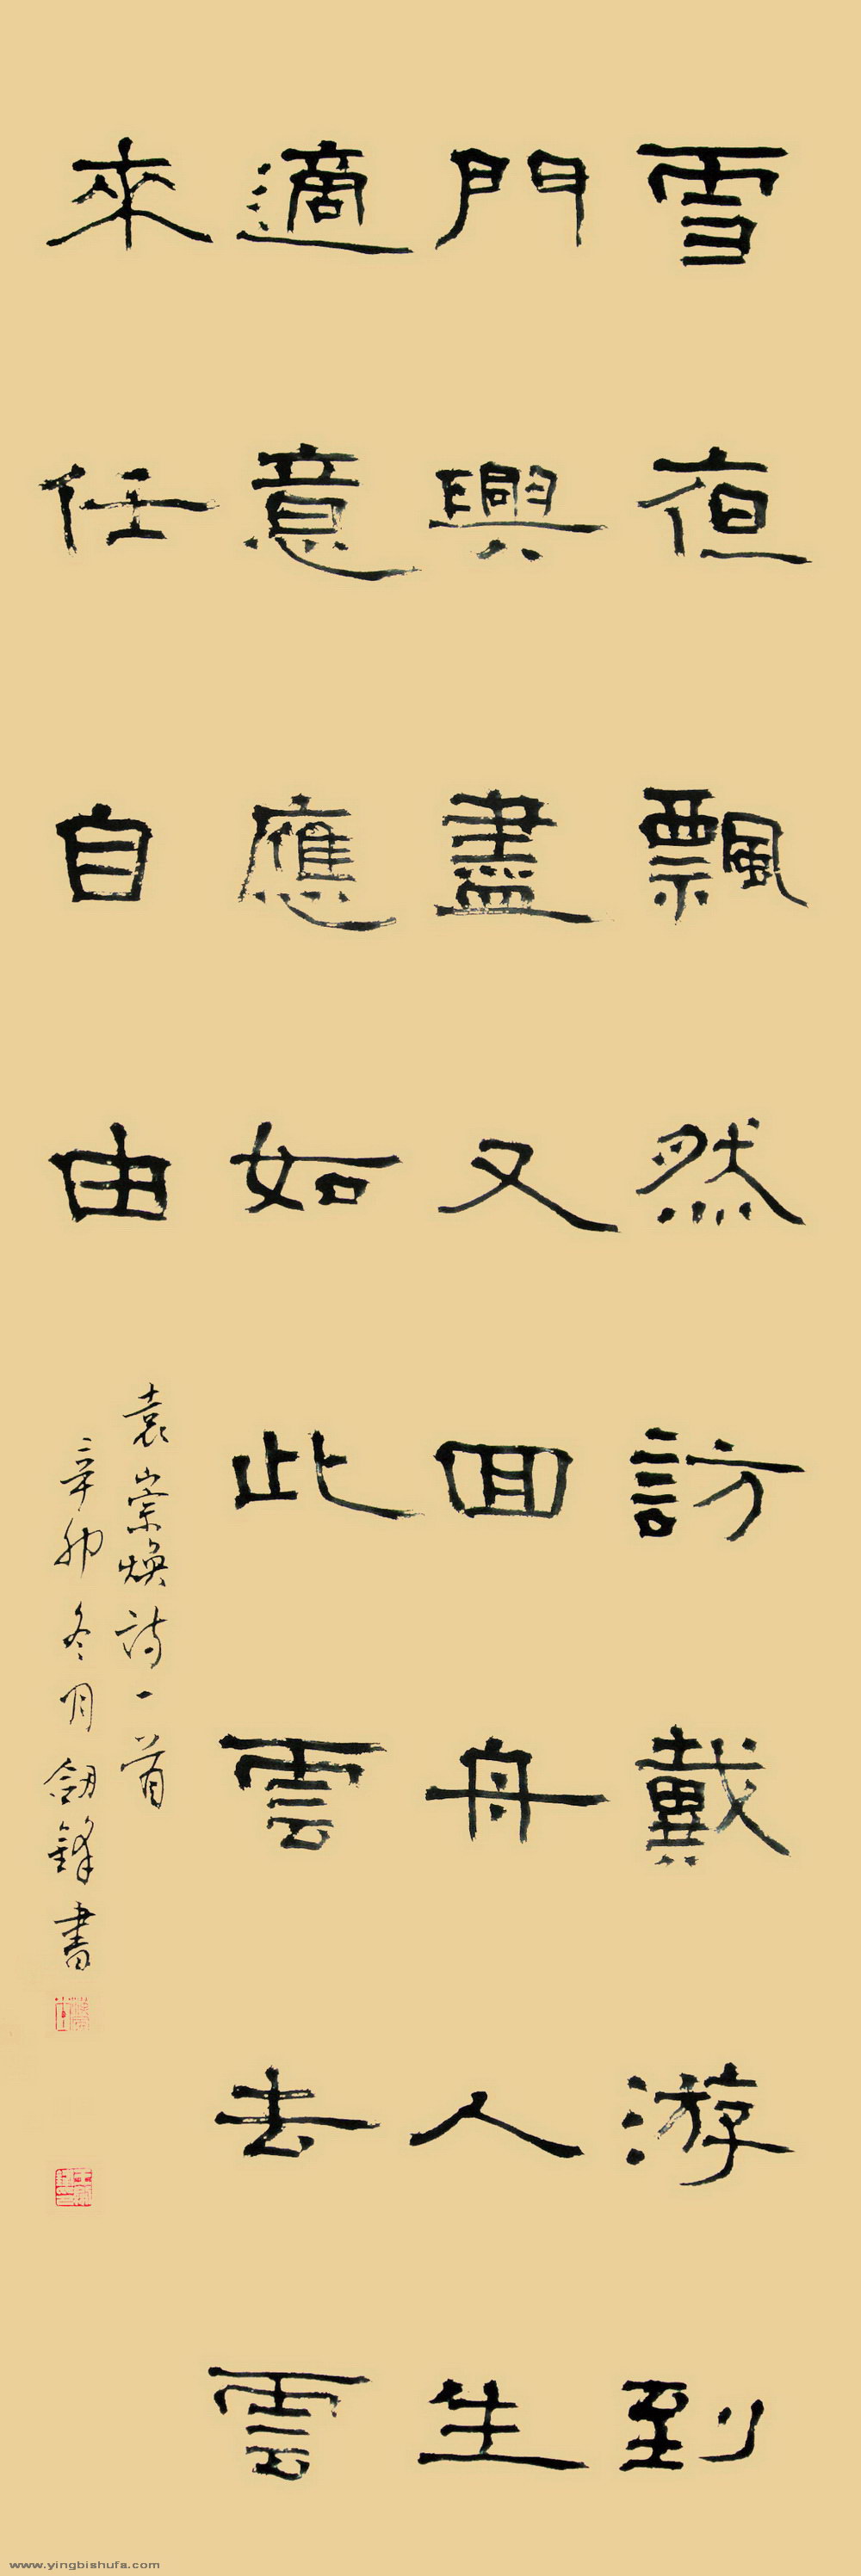 雪夜飄然訪戴游到
門興盡又回舟人生
適意應如此雲去雲
來任自由
袁崇煥詩一首
辛卯冬月劍鋒書
www.yingbishufa.com